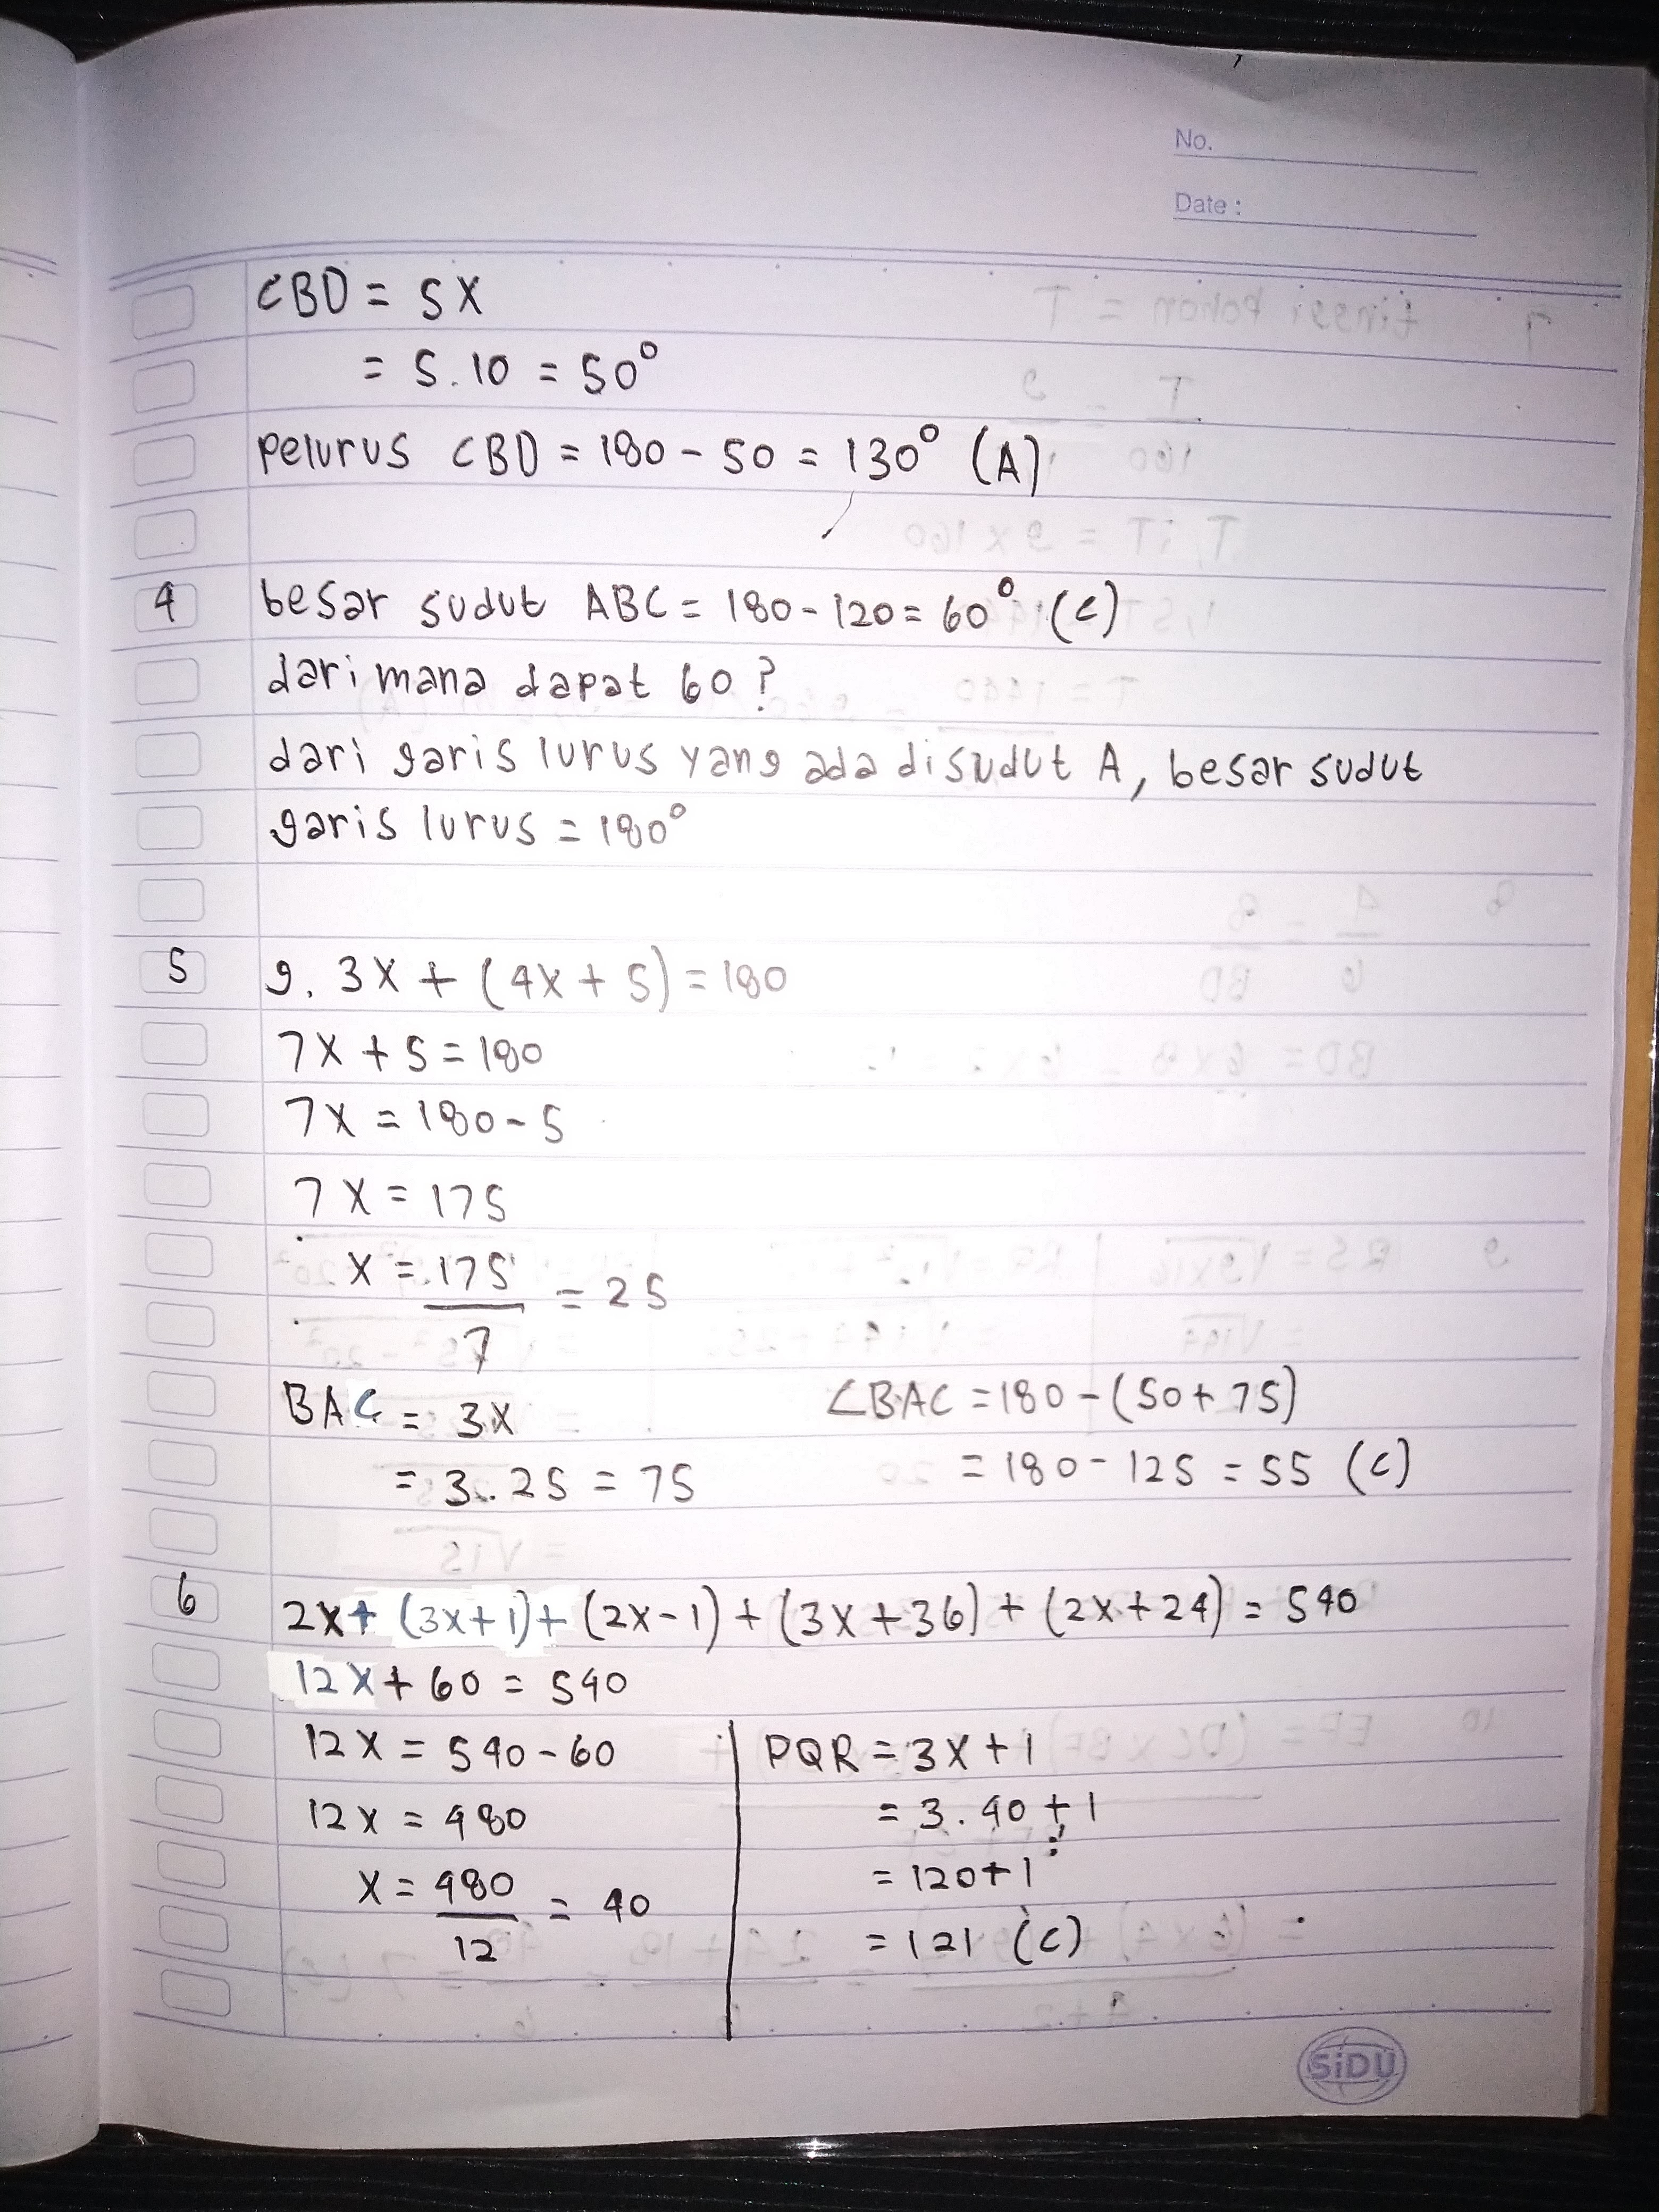 No.
Date :
CBD = 5x
= 5.10 = 50°
Pelurus CBD = 180 - 50 = 130° (A)
4 besar sudut ABC = 180 - 120 = 60° (C)
dari mana dapat 60?
dari garis lurus yang ada disudut A, besar sudut
garis lurus = 180°
5 9. 3x + (4x + 5) = 180
7x + 5 = 180
7x = 180 - 5
7x = 175
x = 175/7 = 25
BAC = 3x
= 3.25 = 75
∠BAC = 180 - (50 + 75)
= 180 - 125 = 55 (C)
6 2x + (3x + 1) + (2x - 1) + (3x + 36) + (2x + 24) = 540
12x + 60 = 540
12x = 540 - 60
12x = 480
x = 480/12 = 40
PQR = 3x + 1
= 3.40 + 1
= 120 + 1
= 121 (C)
SiDU